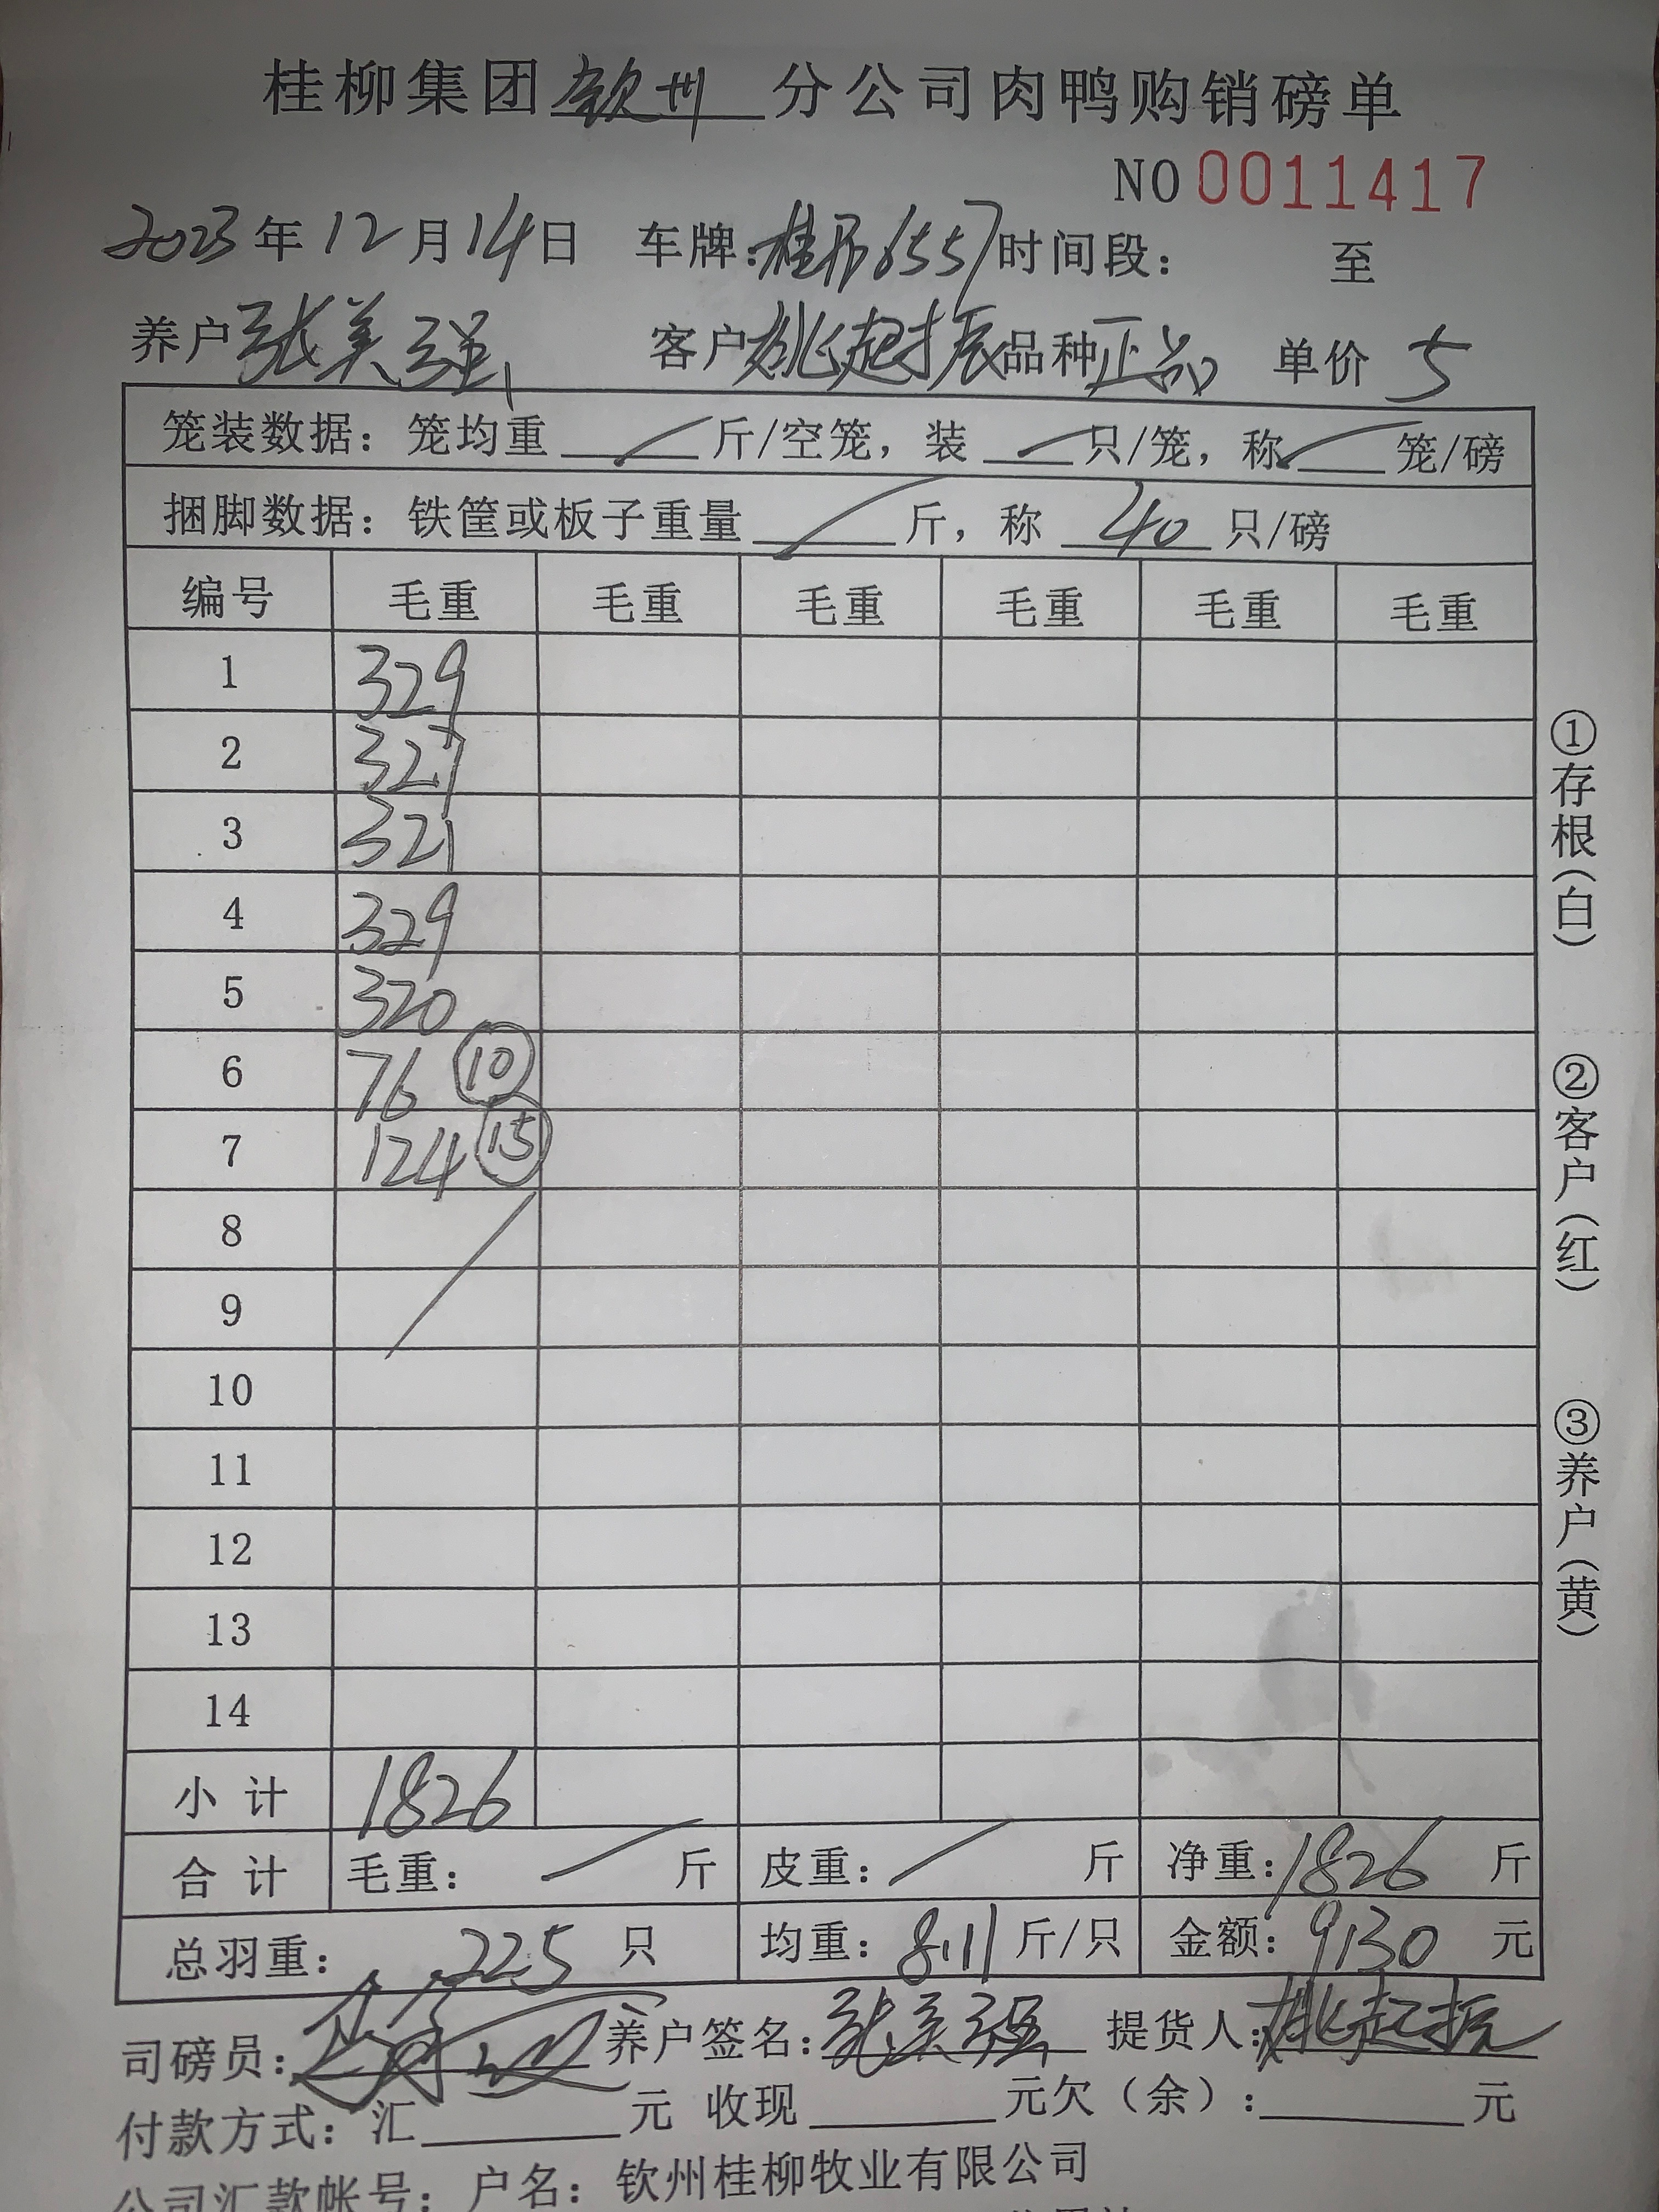 桂柳集团钦州分公司肉鸭购销磅单
NO 0011417
2023年12月14日 车牌: 时间段: 至
养户张美强 客户姚起振 品种正品 单价 5
笼装数据: 笼均重 斤/空笼, 装 只/笼, 称 笼/磅
捆脚数据: 铁筐或板子重量 斤, 称 40 只/磅
编号 毛重 毛重 毛重 毛重 毛重 毛重
1 329
2 327
3 321
4 329
5 320
6 76 ⑩
7 124 ⑮
8
9
10
11
12
13
14
小计 1826
合计 毛重: 斤 皮重: 斤 净重: 1826 斤
总羽重: 225 只 均重: 8.11 斤/只 金额: 9130 元
司磅员: 养户签名: 张美强 提货人: 姚起振
付款方式: 汇 元 收现 元欠(余): 元
公司汇款帐号: 户名: 钦州桂柳牧业有限公司
①存根(白)
②客户(红)
③养户(黄)